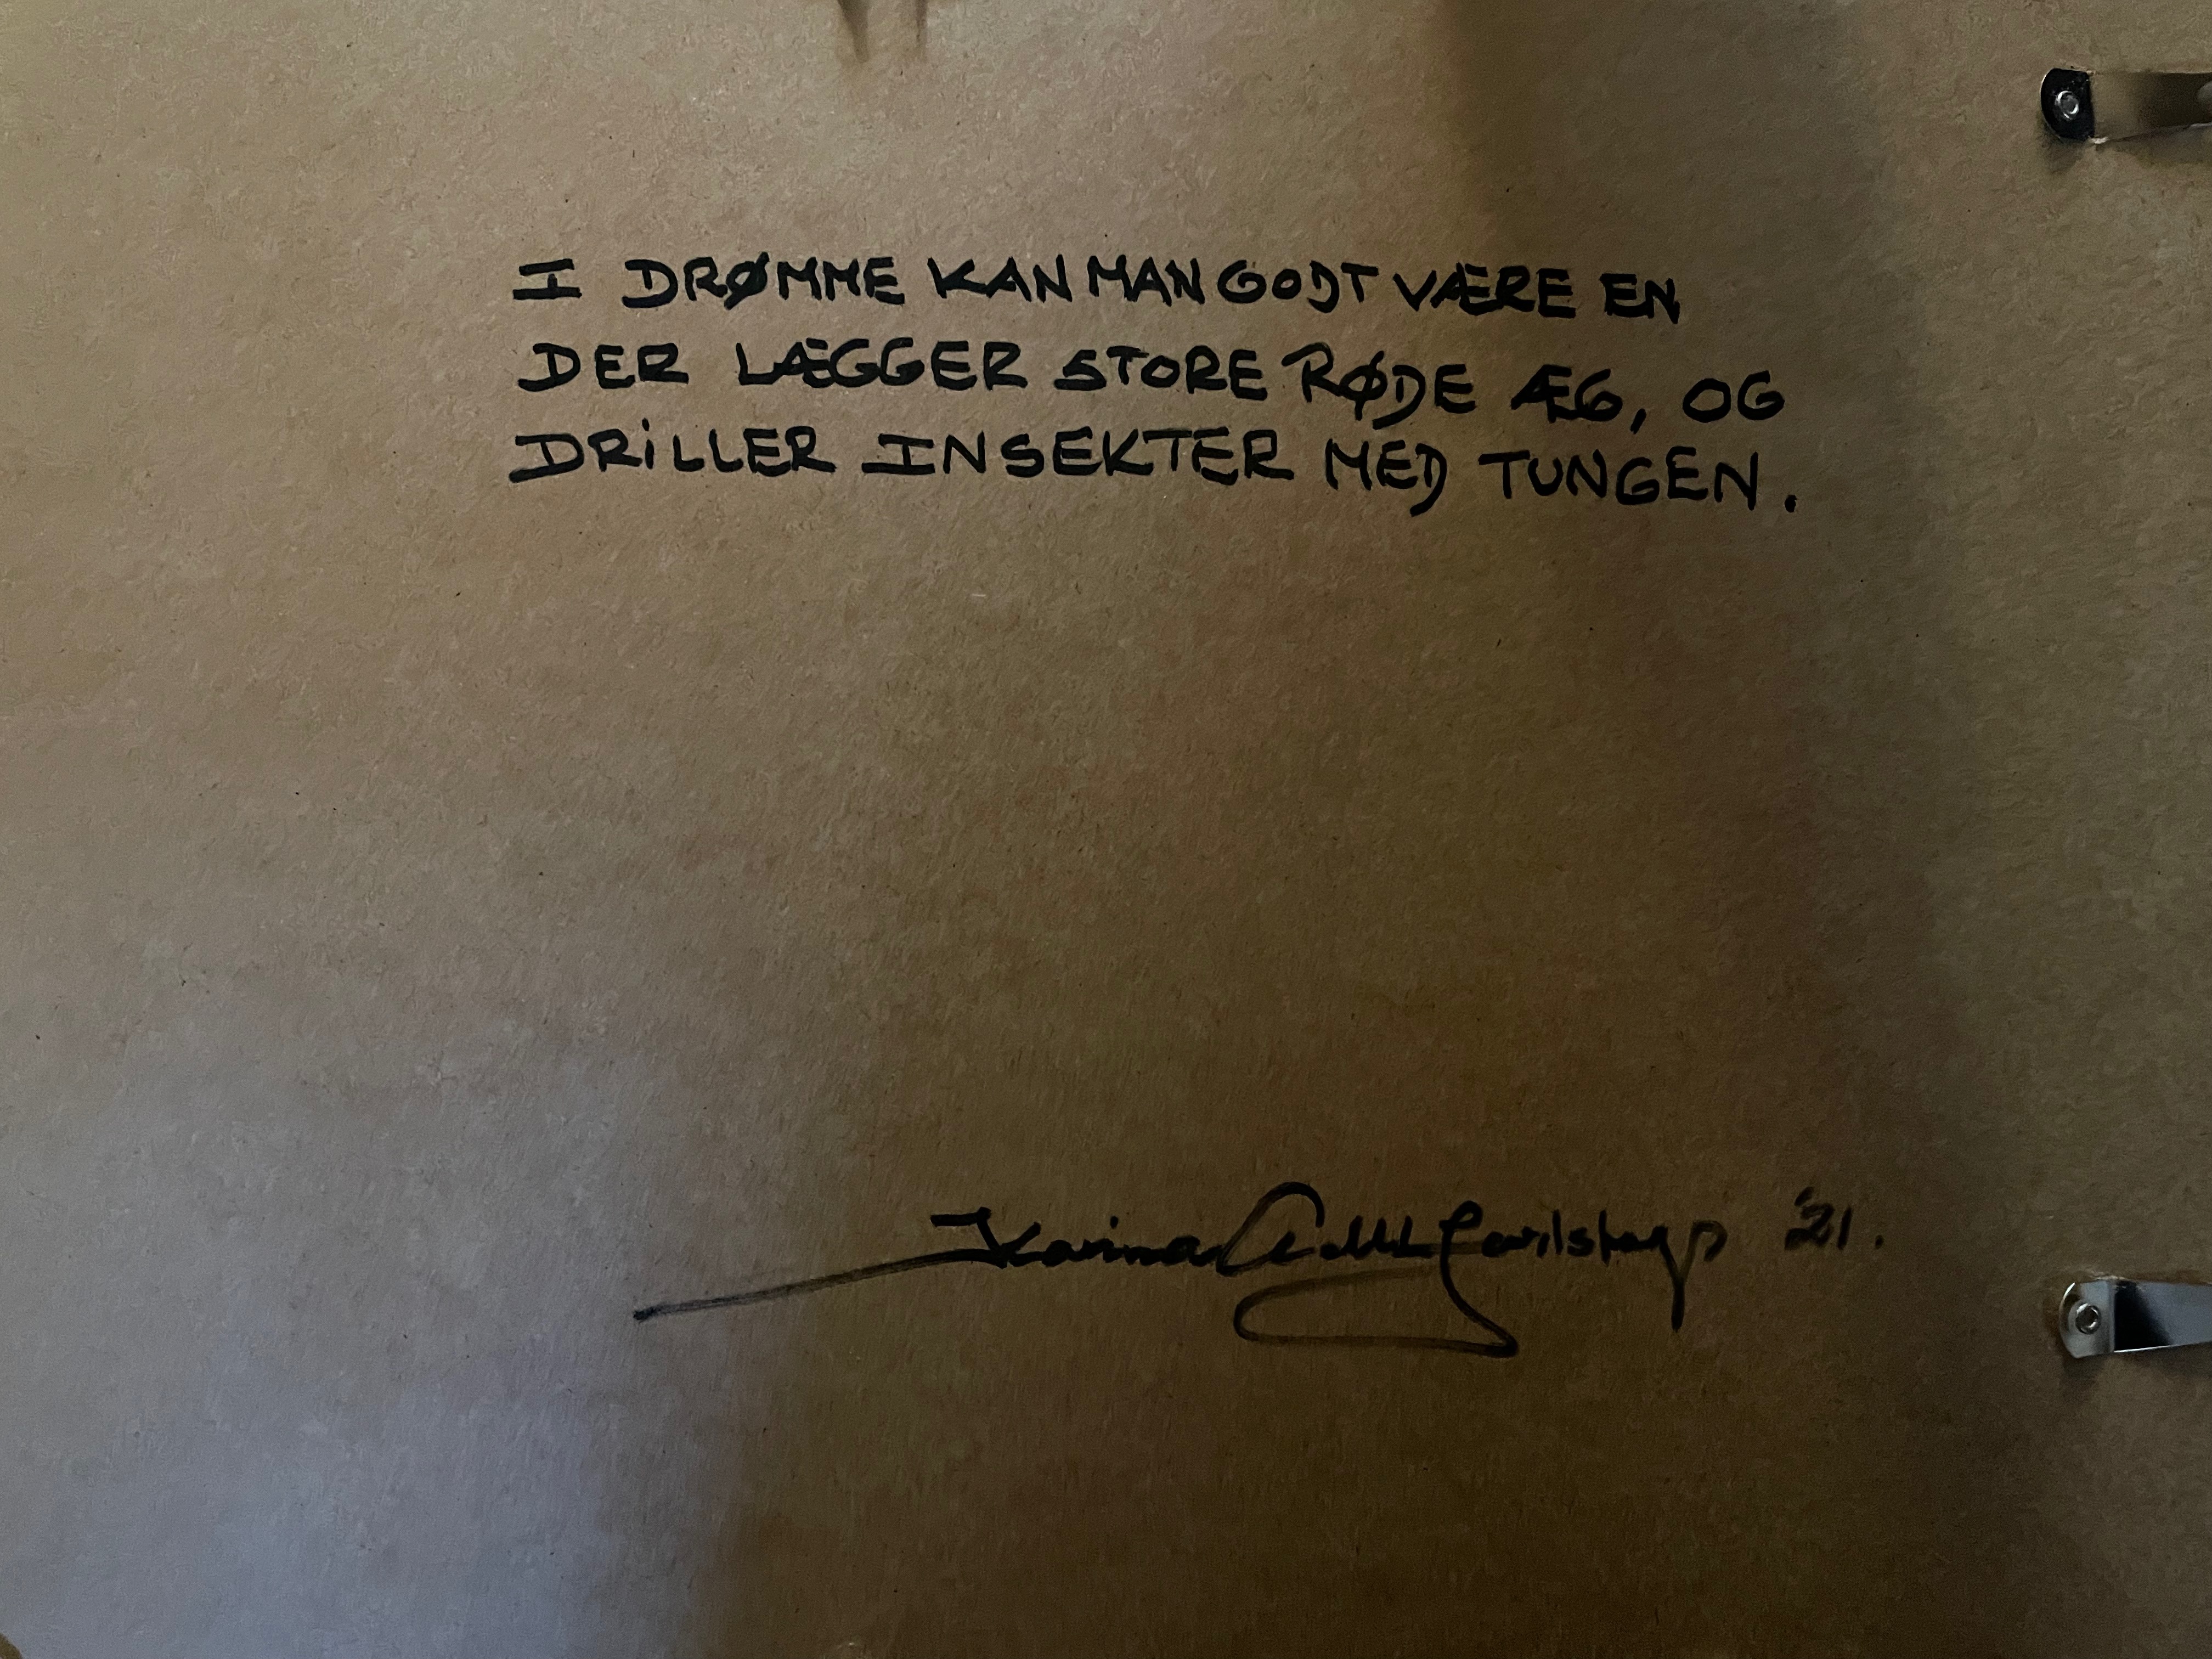 I DRØMME KAN MAN GODT VÆRE EN
DER LÆGGER STORE RØDE ÆG, OG
DRILLER INSEKTER MED TUNGEN.
Karina '21.